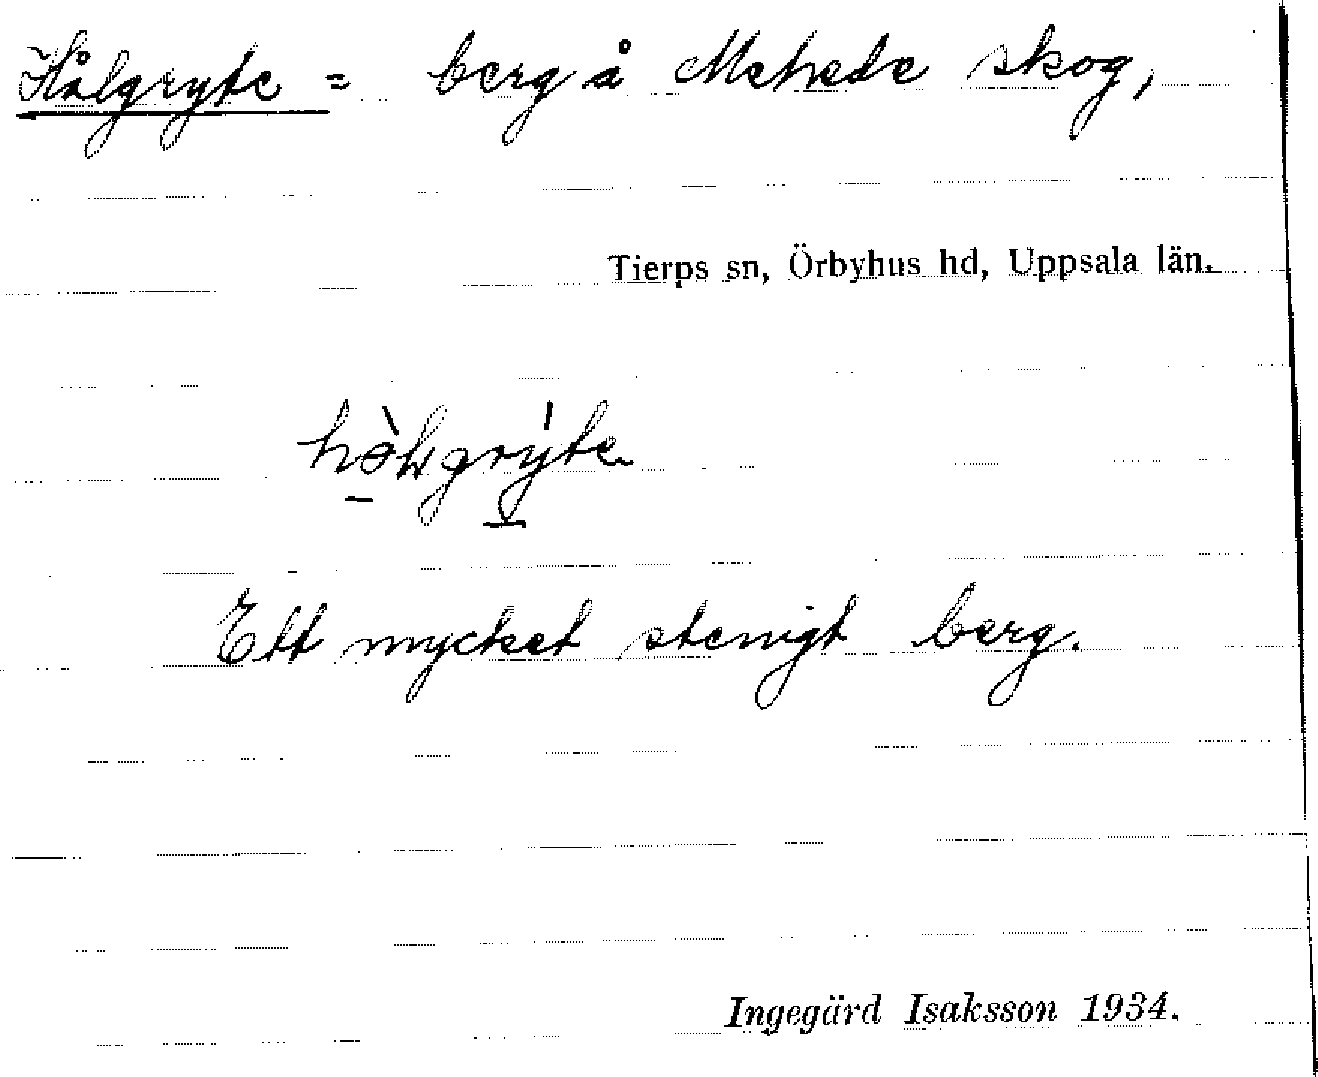 Hålgryte = berg å Mehede skog,
Tierps sn, Örbyhus hd, Uppsala län.
Ett mycket stenigt berg.
Ingegärd Isaksson 1934.